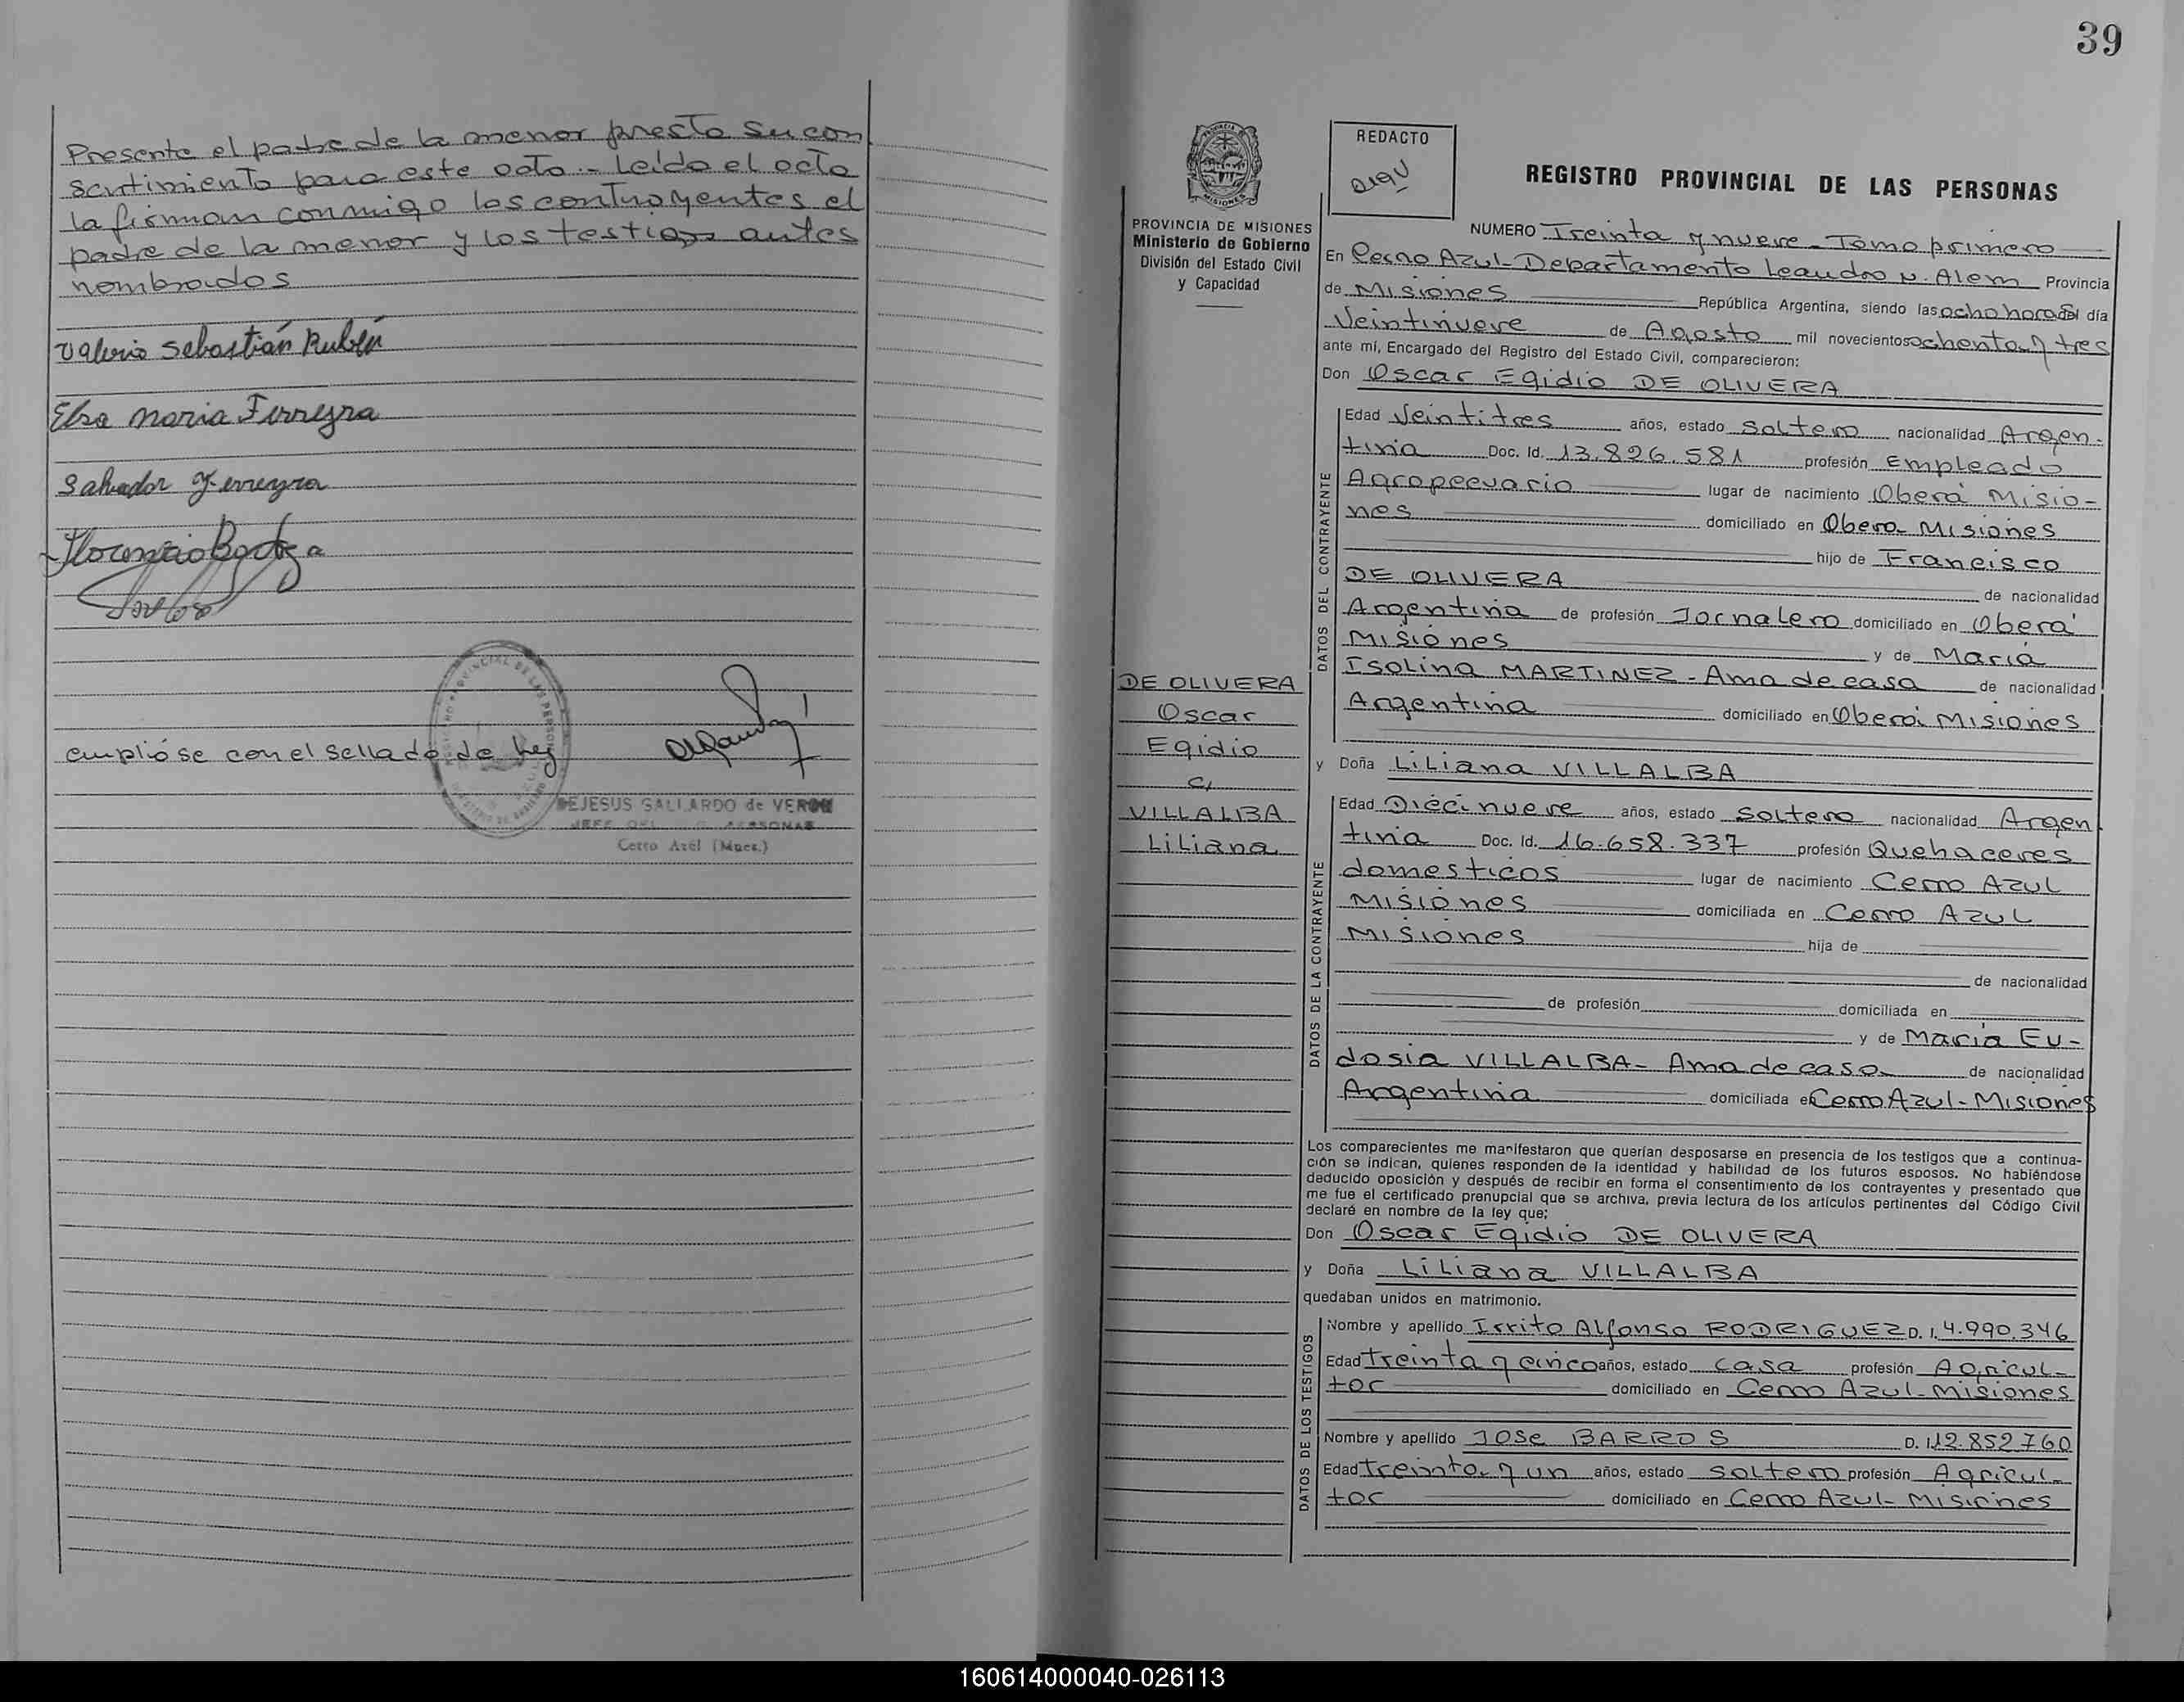 Presente el padre de la menor presta su con
sentimiento para este acto.- Leído el acta
la firman conmigo los contrayentes el
padre de la menor y los testigos antes
nombrados
Valerio Sebastián Rubén
Elsa Maria Ferreyra
Salvador Ferreyra
Florencio
cumplióse con el sellado de ley
DEJESUS GALLARDO de VERON
JEFE DEL PERSONAS
Cerro Azúl (Mnes.)
39
PROVINCIA DE MISIONES
Ministerio de Gobierno
División del Estado Civil
y Capacidad
REDACTO
REGISTRO PROVINCIAL DE LAS PERSONAS
NUMERO Treinta y nueve - Tomo primero
En Cerro Azul - Departamento Leandro N. Alem Provincia
de Misiones República Argentina, siendo las ocho horas del día
Veintinueve de Agosto mil novecientos ochenta y tres
ante mí, Encargado del Registro del Estado Civil, comparecieron:
Don Oscar Egidio DE OLIVERA
DATOS DEL CONTRAYENTE
Edad Veintitres años, estado Soltero nacionalidad Argen-
tina Doc. Id. 13.826.581 profesión Empleado
Agropecuario lugar de nacimiento Oberá Misio-
nes domiciliado en Obera- Misiones
hijo de Francisco
DE OLIVERA de nacionalidad
Argentina de profesión Jornalero domiciliado en Oberá
Misiones y de María
Isolina MARTINEZ - Ama de casa de nacionalidad
Argentina domiciliado en Oberá Misiones
DE OLIVERA
Oscar
Egidio
c/
VILLALBA
Liliana
y Doña Liliana VILLALBA
DATOS DE LA CONTRAYENTE
Edad Diecinueve años, estado Soltera nacionalidad Argen
tina Doc. Id. 16.658.337 profesión Quehaceres
domesticos lugar de nacimiento Cerro Azul
Misiones domiciliada en Cerro Azul
Misiones hija de
de nacionalidad
de profesión domiciliada en
y de María Eu-
dosia VILLALBA - Ama de casa de nacionalidad
Argentina domiciliada en Cerro Azul - Misiones
Los comparecientes me manifestaron que querían desposarse en presencia de los testigos que a continua-
ción se indican, quienes responden de la identidad y habilidad de los futuros esposos. No habiéndose
deducido oposición y después de recibir en forma el consentimiento de los contrayentes y presentado que
me fue el certificado prenupcial que se archiva, previa lectura de los artículos pertinentes del Código Civil
declaré en nombre de la ley que;
Don Oscar Egidio DE OLIVERA
y Doña Liliana VILLALBA
quedaban unidos en matrimonio.
DATOS DE LOS TESTIGOS
Nombre y apellido Irrito Alfonso RODRIGUEZ D. I. 4.990.346
Edad treinta y cinco años, estado casa profesión Agricul-
tor domiciliado en Cerro Azul - Misiones
Nombre y apellido Jose BARROS D. I. 12.852760
Edad treinta y un años, estado soltero profesión Agricul-
tor domiciliado en Cerro Azul - Misiones
160614000040-026113